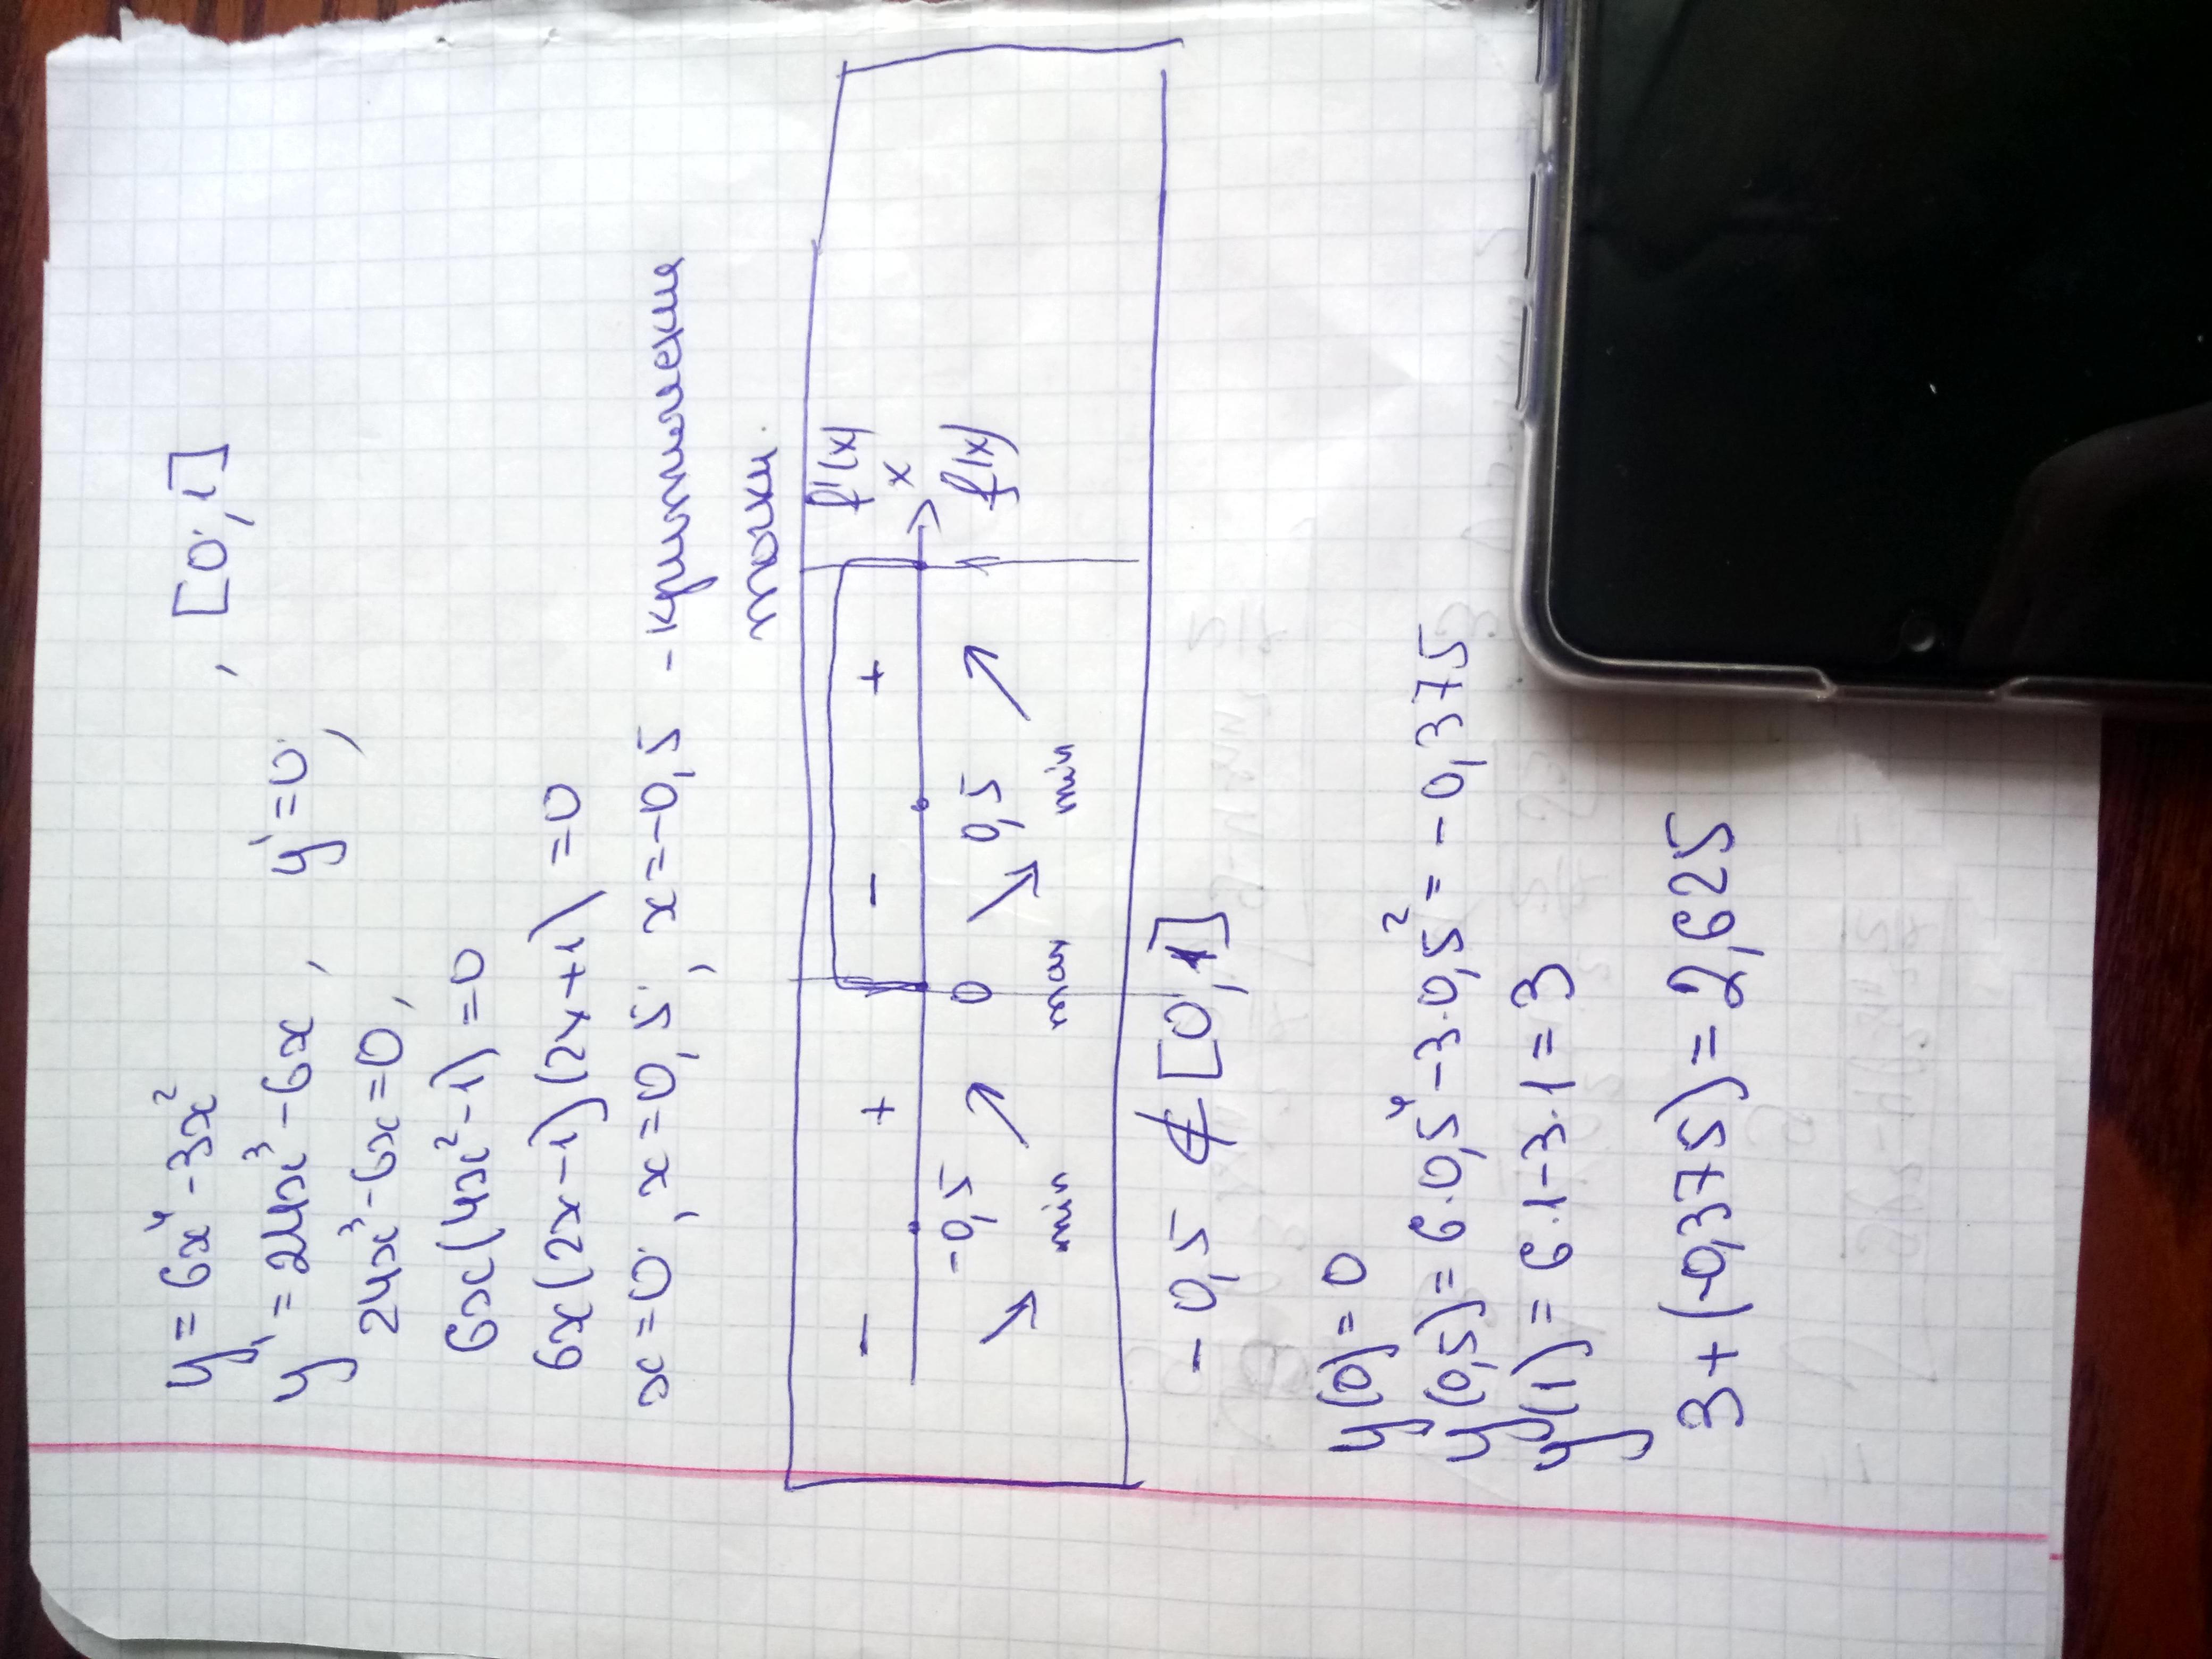 y = 6x⁴ - 3x² , [0; 1]
y' = 24x³ - 6x , y' = 0;
24x³ - 6x = 0,
6x(4x² - 1) = 0
6x(2x - 1)(2x + 1) = 0
x = 0; x = 0,5; x = -0,5 - критические
точки.
- + - + f'(x)
x
-0,5 0 0,5 f(x)
min max min
-0,5 ∉ [0; 1]
y(0) = 0
y(0,5) = 6·0,5⁴ - 3·0,5² = -0,375
y(1) = 6·1 - 3·1 = 3
3 + (-0,375) = 2,625